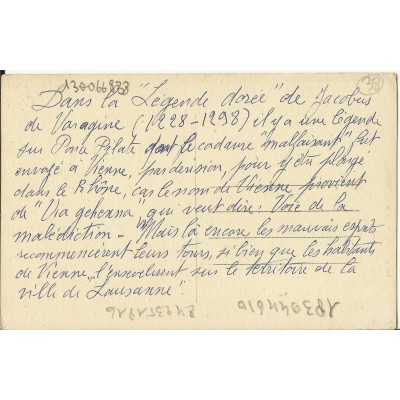 130066833
38
Dans la "Légende dorée" de Jacobus
de Varagine (1228-1298) il y a une légende
sur Ponce Pilate dont le cadavre "malfaisant" fut
envoyé à Vienne, par dérision, pour y être plongé
dans le Rhône, car le nom de Vienne provient
de "Via gehenna", qui veut dire: Voie de la
malédiction - "Mais là encore les mauvais esprits
recommencèrent leurs tours, si bien que les habitants
de Vienne, "l'ensevelirent sur le territoire de la
ville de Lausanne".